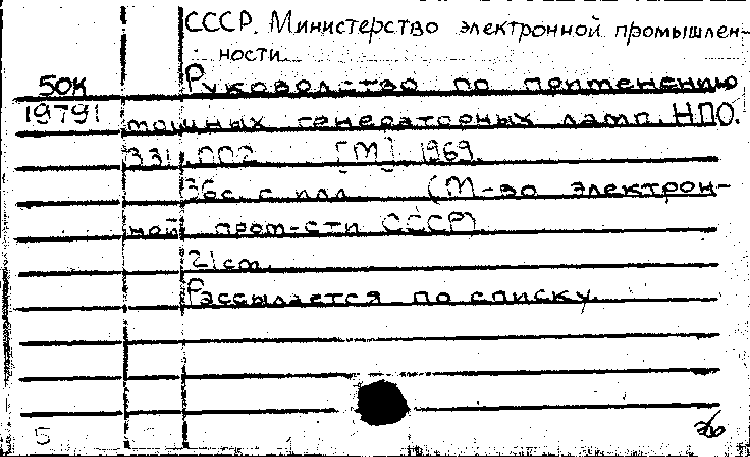 СССР. Министерство электронной промышлен-
ности.
50К Руководство по применению
19791 мощных генераторных ламп. НПО.
331.002 [М] 1969.
36с. с илл. (М-во электрон-
ной пром-сти СССР).
21см.
Рассылается по списку.
5